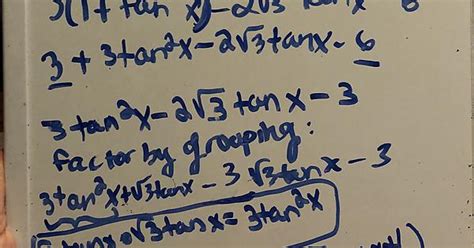 3(1 + tan²x) - 2√3 tanx 6
3 + 3tan²x - 2√3 tanx - 6
3tan²x - 2√3 tan x - 3
factor by grouping:
3tan²x + √3 tanx - 3√3 tanx - 3
tanx • √3 tanx = 3tan²x